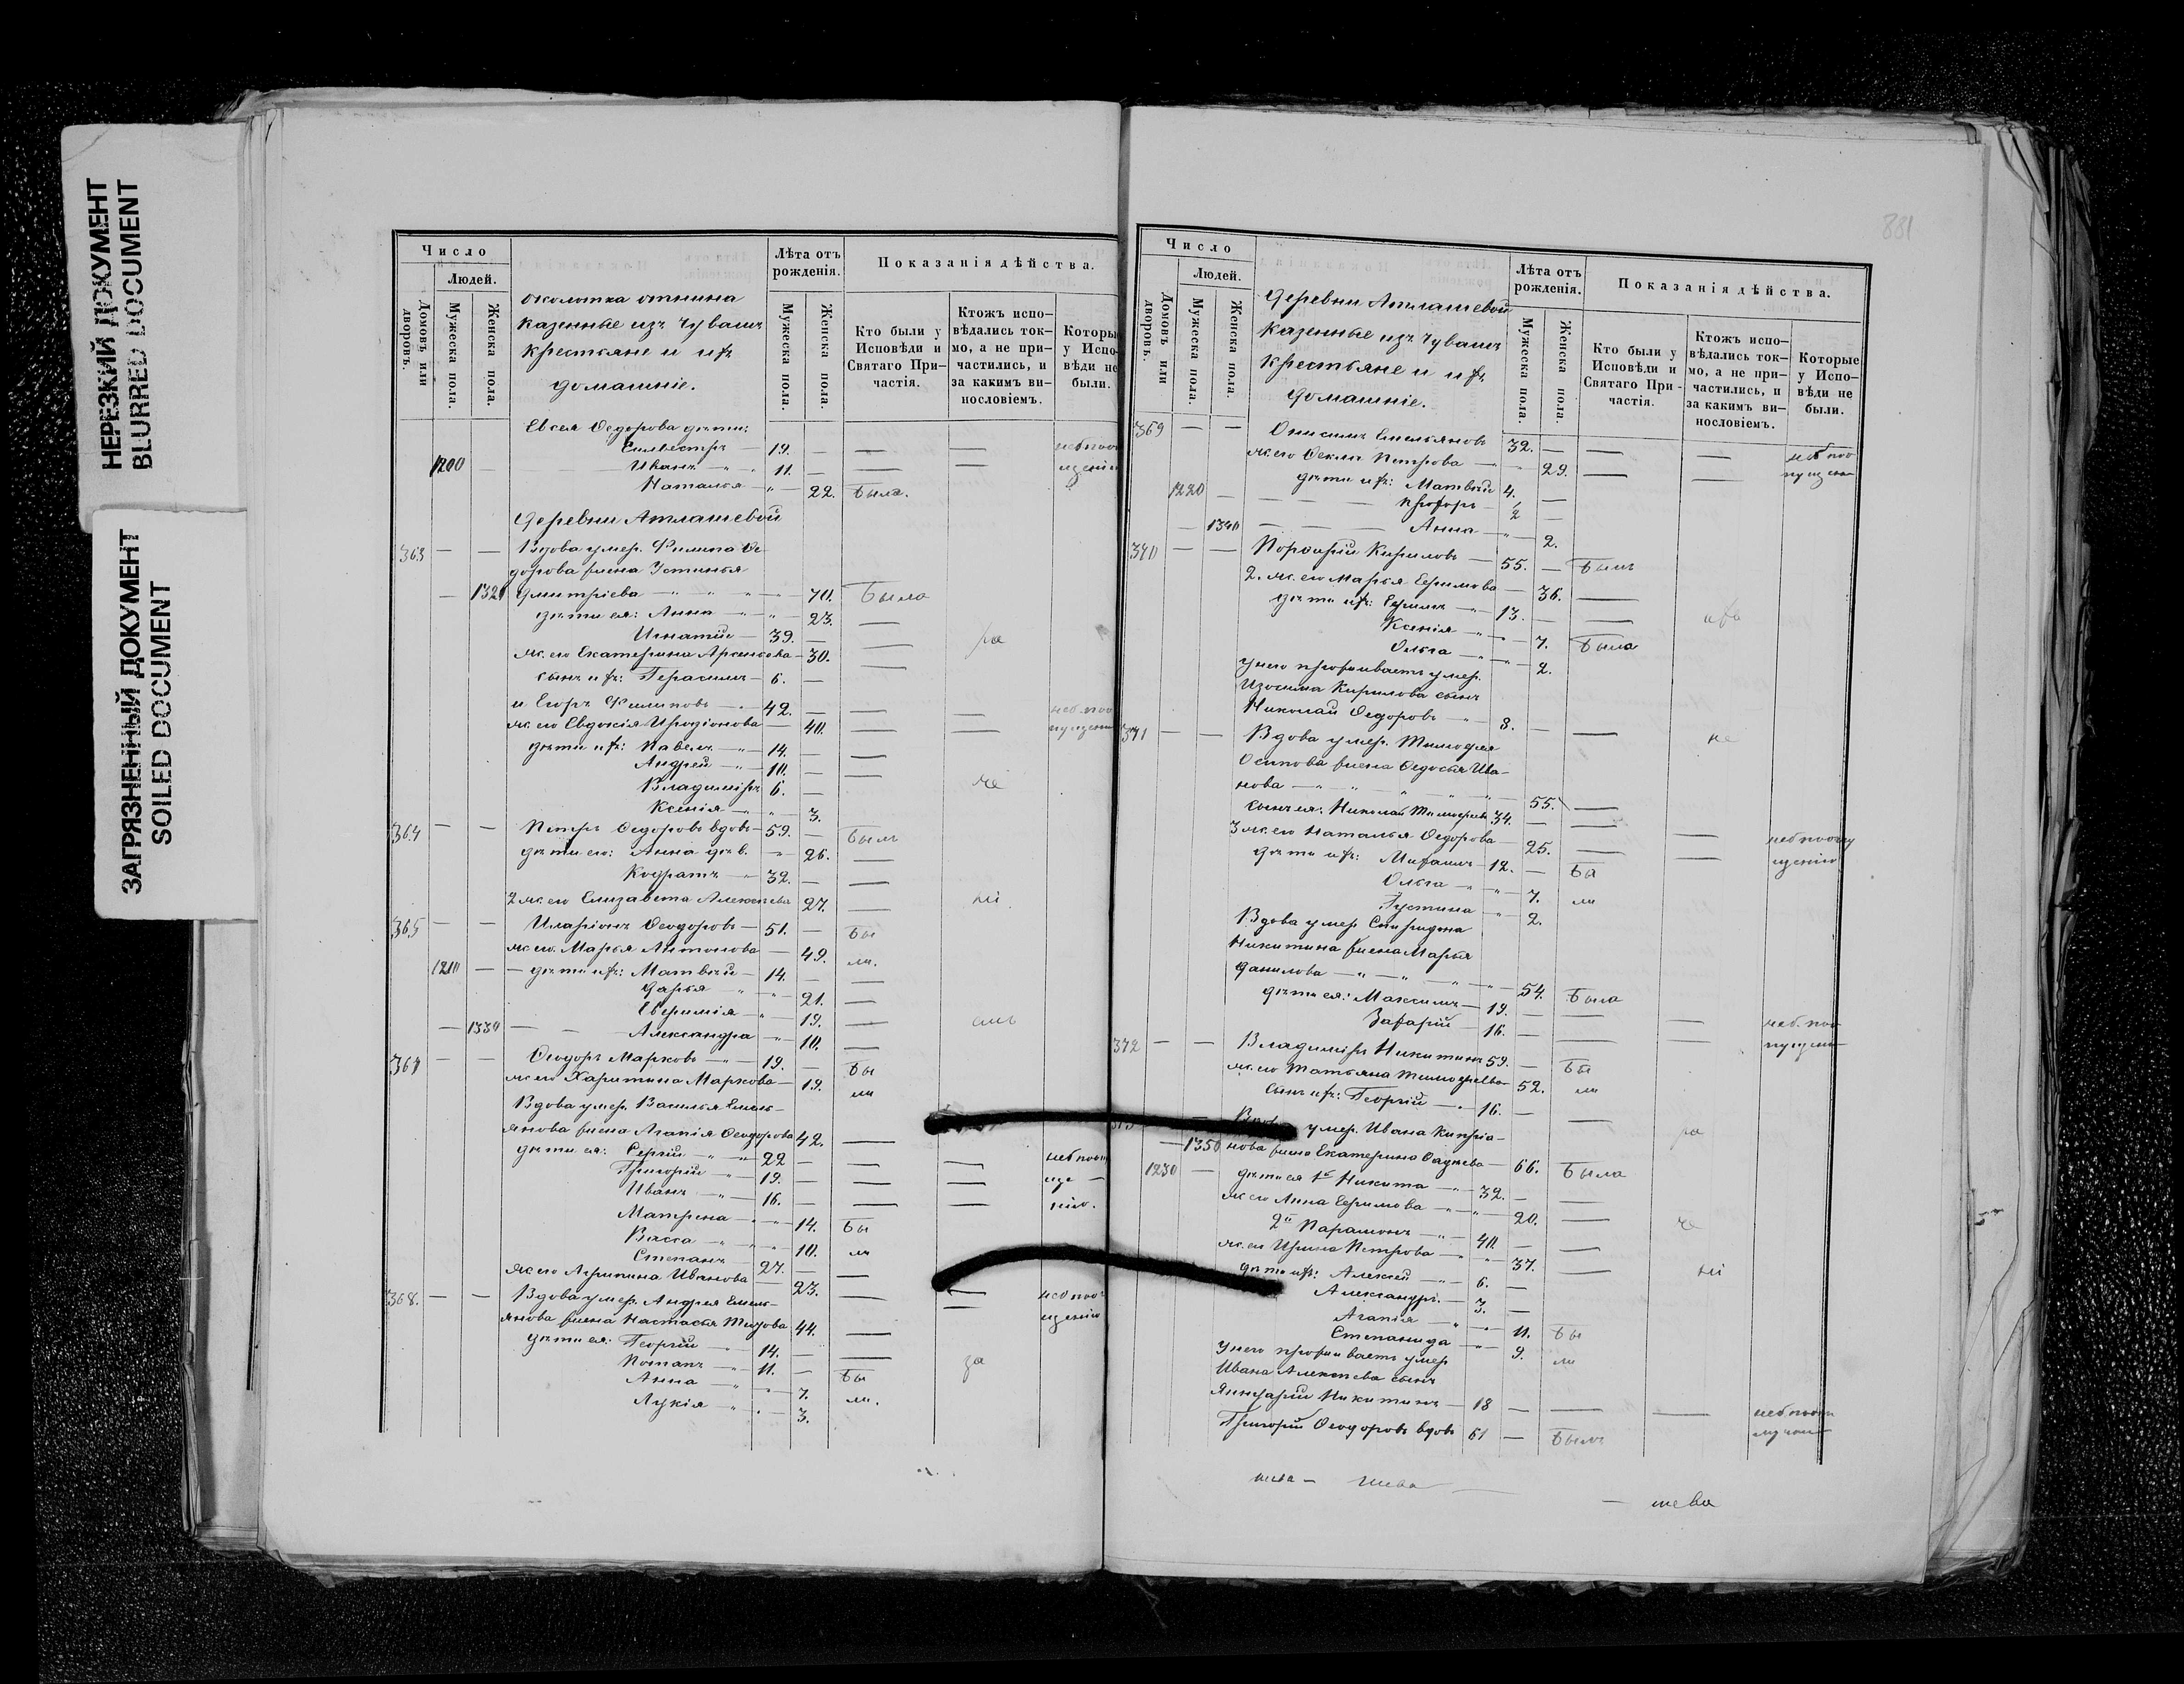 НЕРЕЗКИЙ ДОКУМЕНТ
BLURRED DOCUMENT
ЗАГРЯЗНЕННЫЙ ДОКУМЕНТ
SOILED DOCUMENT
Число
Людей.
Домовъ или дворовъ.
Мужеска пола.
Женска пола.
околотка
казенные изъ чувашъ
крестьяне и ихъ
домашніе.
Лѣта отъ рожденія.
Мужеска пола.
Женска пола.
Показанія дѣйства.
Кто были у Исповѣди и Святаго Причастія.
Ктожъ исповѣдались токмо, а не причастились, и за какимъ винословіемъ.
Которы у Испо- вѣди не были.
Евсея Ѳедорова дѣти:
Сильвестръ — 19.
1200 Иванъ — 11.
Наталья — 22. Была.
Деревни Атлашевой
363 — — Вдова умер. Филипа Ѳе-
дорова жена Устинья
Дмитріева — 70. Была
дѣти ея: Анна — 23.
Игнатій — 39.
ж. его Екатерина Арсеньева — 30.
сынъ ихъ: Герасимъ — 6.
и Егоръ Филиповъ — 42.
ж. его Евдокія Иродіонова — 40.
дѣти ихъ: Павелъ — 14.
Андрей — 10.
Владиміръ 6.
Ксенія — 3.
364 — — Петръ Ѳедоровъ вдовъ — 59. — Былъ
дѣти его: Анна — 26.
Кодратъ — 32.
2 ж. его Елизавета Алексѣева 27.
365 — — Иларіонъ Ѳеодоровъ — 51. — Бы
ж. его Марья Антонова — 49. ли.
1210 — дѣти ихъ: Матвѣй — 14.
Дарья — 21.
Евфимія — 19.
1330 — Александра — 10.
Ѳеодоръ Марковъ — 19. — Бы
ж. его Харитина Маркова — 19. ли
Вдова умер. Василья Емель-
янова жена Агапія Ѳеодорова 42.
дѣти ея: Сергій — 22
Григорій — 19.
Иванъ — 16.
Матрена — 14. Бы
Васса — 10. ли
Степанъ — 27.
ж. его Агрипина Иванова — 23.
368. — — Вдова умер. Андрея Емель-
янова жена Настасья 44.
дѣти ея: Георгій — 14.
Потапъ — 11. — Бы
Анна — 7. ли.
Лукія — 3.
881
Число
Людей.
Домовъ или дворовъ.
Мужеска пола.
Женска пола.
Деревни Атлашевой
казенные изъ чувашъ
крестьяне и ихъ
домашніе.
Лѣта отъ рожденія.
Мужеска пола.
Женска пола.
Показанія дѣйства.
Кто были у Исповѣди и Святаго Причастія.
Ктожъ исповѣдались токмо, а не причастились, и за какимъ винословіемъ.
Которые у Исповѣди не были.
369 — — Онисимъ Емельяновъ 32.
ж. его Ѳекла Петрова — 29.
1220 — дѣти ихъ: Матвѣй 4.
Прохоръ
1340 — Анна — 2.
370 — — Порфирій Кириловъ — 55. — Былъ
2. ж. его Марья Ефимова — 36.
дѣти ихъ: Ефимъ — 13.
Ксенія — 7. Была
Ольга — 2.
у него проживаетъ умер.
Изосима Кирилова сынъ
Николай Ѳедоровъ — 8.
371 — — Вдова умер. Тимофея
Осипова жена Ѳедосья Ива-
нова — 55.
сынъ ея: Николай Тимофеевъ 34.
3 ж. его Наталья Ѳедорова — 25.
дѣти ихъ: — 12. — Бы
Ольга — 7. ли
Іустина — 2.
Вдова умер. Спиридона
Никитина жена Марья
Данилова — 54. Была
дѣти ея: Максимъ — 19.
Захарій — 16.
372 — — Владиміръ Никитинъ 59. — Бы
ж. его Татьяна Тимофеева — 52. ли
сынъ ихъ: Георгій — 16.
умер. Ивана Кипріа-
1350 нова жена Екатерина — 66. Была
1230 — дѣти ея 1й Никита — 32.
ж. его Анна Ефимова — 20.
2й Парамонъ — 40.
ж. его Ирина Петрова — 37.
дѣти ихъ: Алексей — 6.
Александръ — 3.
Агапія — 11. Бы
Степанида — 9. ли
у него проживаетъ умер
Ивана Алексѣева сынъ
Яннуарій Никитинъ — 18
Григорій Ѳеодоровъ вдовъ 61 — Былъ
шева — шева
— шева